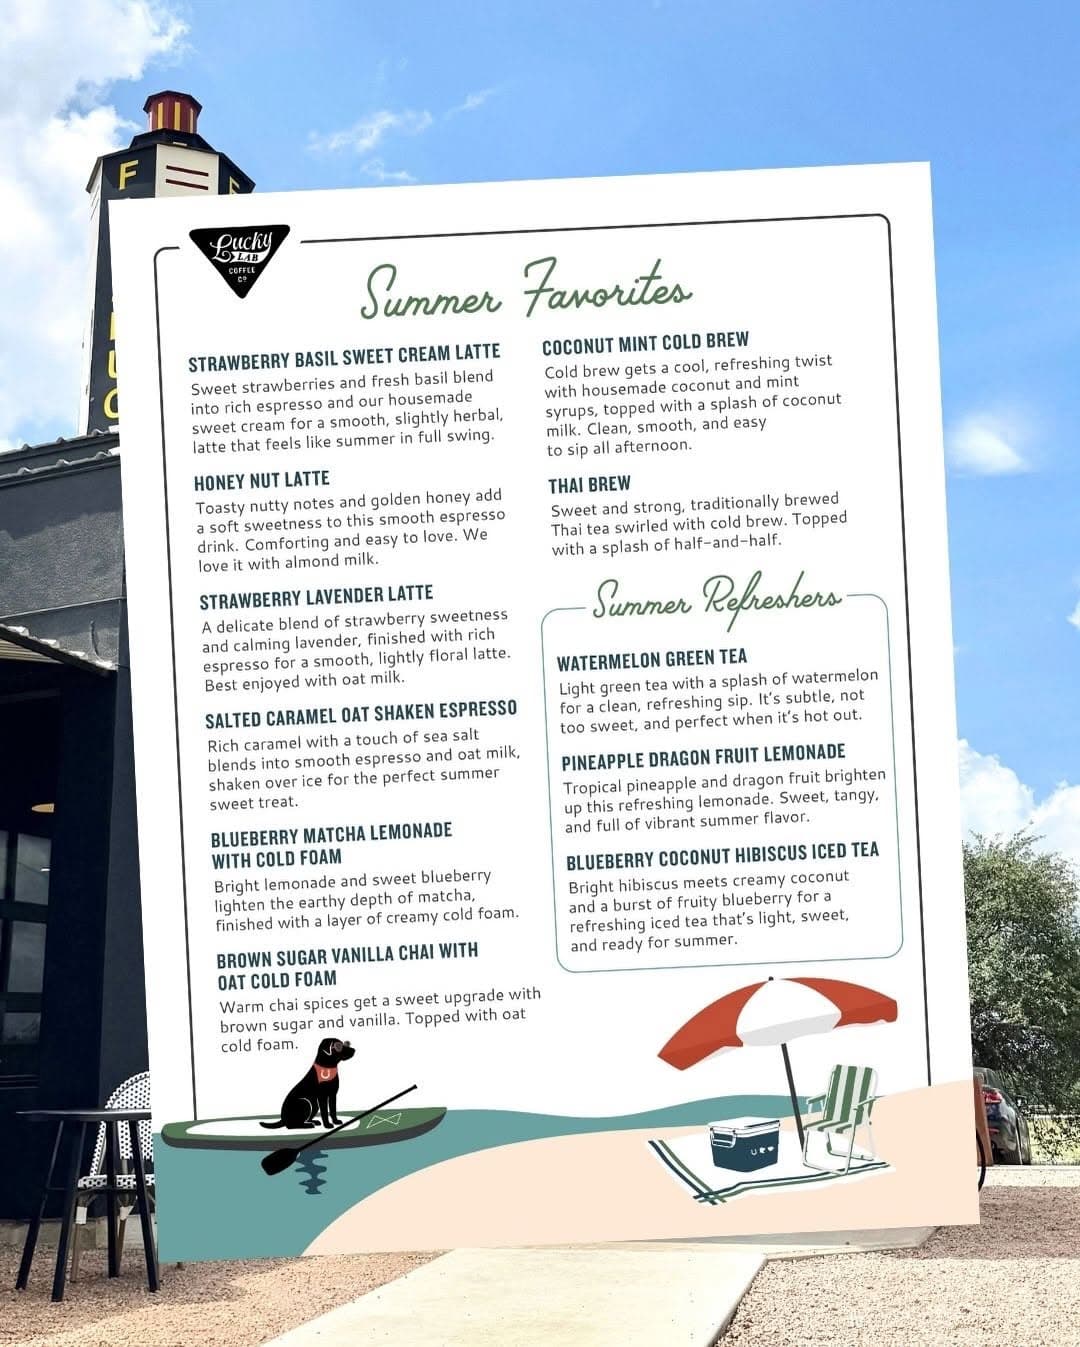 F
F
U
C
Lucky
LAB
COFFEE
Cº
Summer Favorites
STRAWBERRY BASIL SWEET CREAM LATTE
Sweet strawberries and fresh basil blend
into rich espresso and our housemade
sweet cream for a smooth, slightly herbal,
latte that feels like summer in full swing.
HONEY NUT LATTE
Toasty nutty notes and golden honey add
a soft sweetness to this smooth espresso
drink. Comforting and easy to love. We
love it with almond milk.
STRAWBERRY LAVENDER LATTE
A delicate blend of strawberry sweetness
and calming lavender, finished with rich
espresso for a smooth, lightly floral latte.
Best enjoyed with oat milk.
SALTED CARAMEL OAT SHAKEN ESPRESSO
Rich caramel with a touch of sea salt
blends into smooth espresso and oat milk,
shaken over ice for the perfect summer
sweet treat.
BLUEBERRY MATCHA LEMONADE
WITH COLD FOAM
Bright lemonade and sweet blueberry
lighten the earthy depth of matcha,
finished with a layer of creamy cold foam.
BROWN SUGAR VANILLA CHAI WITH
OAT COLD FOAM
Warm chai spices get a sweet upgrade with
brown sugar and vanilla. Topped with oat
cold foam.
COCONUT MINT COLD BREW
Cold brew gets a cool, refreshing twist
with housemade coconut and mint
syrups, topped with a splash of coconut
milk. Clean, smooth, and easy
to sip all afternoon.
THAI BREW
Sweet and strong, traditionally brewed
Thai tea swirled with cold brew. Topped
with a splash of half-and-half.
Summer Refreshers
WATERMELON GREEN TEA
Light green tea with a splash of watermelon
for a clean, refreshing sip. It's subtle, not
too sweet, and perfect when it's hot out.
PINEAPPLE DRAGON FRUIT LEMONADE
Tropical pineapple and dragon fruit brighten
up this refreshing lemonade. Sweet, tangy,
and full of vibrant summer flavor.
BLUEBERRY COCONUT HIBISCUS ICED TEA
Bright hibiscus meets creamy coconut
and a burst of fruity blueberry for a
refreshing iced tea that's light, sweet,
and ready for summer.